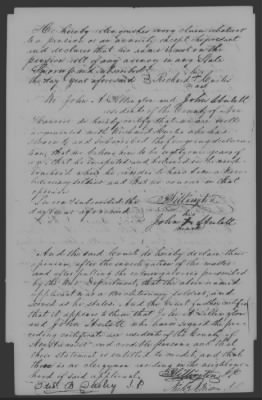 He hereby relinquishes every claim whatever
to a pension or an annuity except the present
and declares that his name is not on the
pension roll of any agency in any State
Sworn and subscribed
the day & year aforesaid Richard
mark
We John A Lillington and John
residents of the County of New
Hanover do hereby certify that we are well
acquainted with Richard who has
and subscribed the foregoing declara-
tion, that we believe him to be eighty one years of
age that he is reputed and believed in the neigh-
bourhood where he resides to have been a Revo-
lutionary soldier and that we concur in that
opinion
Sworn & subscribed the
day & year aforesaid Lillington
his
John
mark
And the said Court do hereby declare their
opinion, after the investigation of the matter
and after putting the interrogatories prescribed
by the War Department, that the above named
applicant was a Revolutionary soldier, and
served as he states. And the Court further certifies
that it appears to them that John A Lillington
and John who have signed the pre-
ceding certificate are residents of the County of
New Hanover and credible persons and that
their statement is entitled to credit, and that
there is no clergyman residing in the neighbour-
hood of said applicant
J.P.